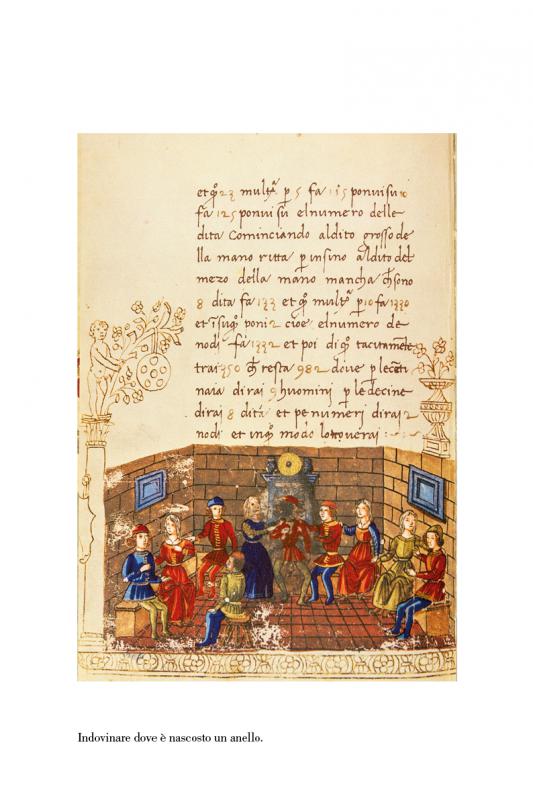 et q̃o 23 multͣ p̱ 5 fa 115 ponvisu 10
fa 125 ponvi su el numero delle
dita Cominciando aldito grosso de
lla mano ritta p̱ insino aldito del
mezo della mano mancha c̃h sono
8 dita fa 133 et q̃o multͣ p̱ 10 fa 1330
et ĩ suq̃o poni 2 cioe elnumero de
nodi fa 1332 et poi di q̃o tacitamẽte
trai 350 c̃h resta 982 dove p le cẽti
naia dirai 9 huomini p le decine
dirai 8 dita et pe numerj dirai 2
nodi et in q̃o modo lo troverai
Indovinare dove è nascosto un anello.